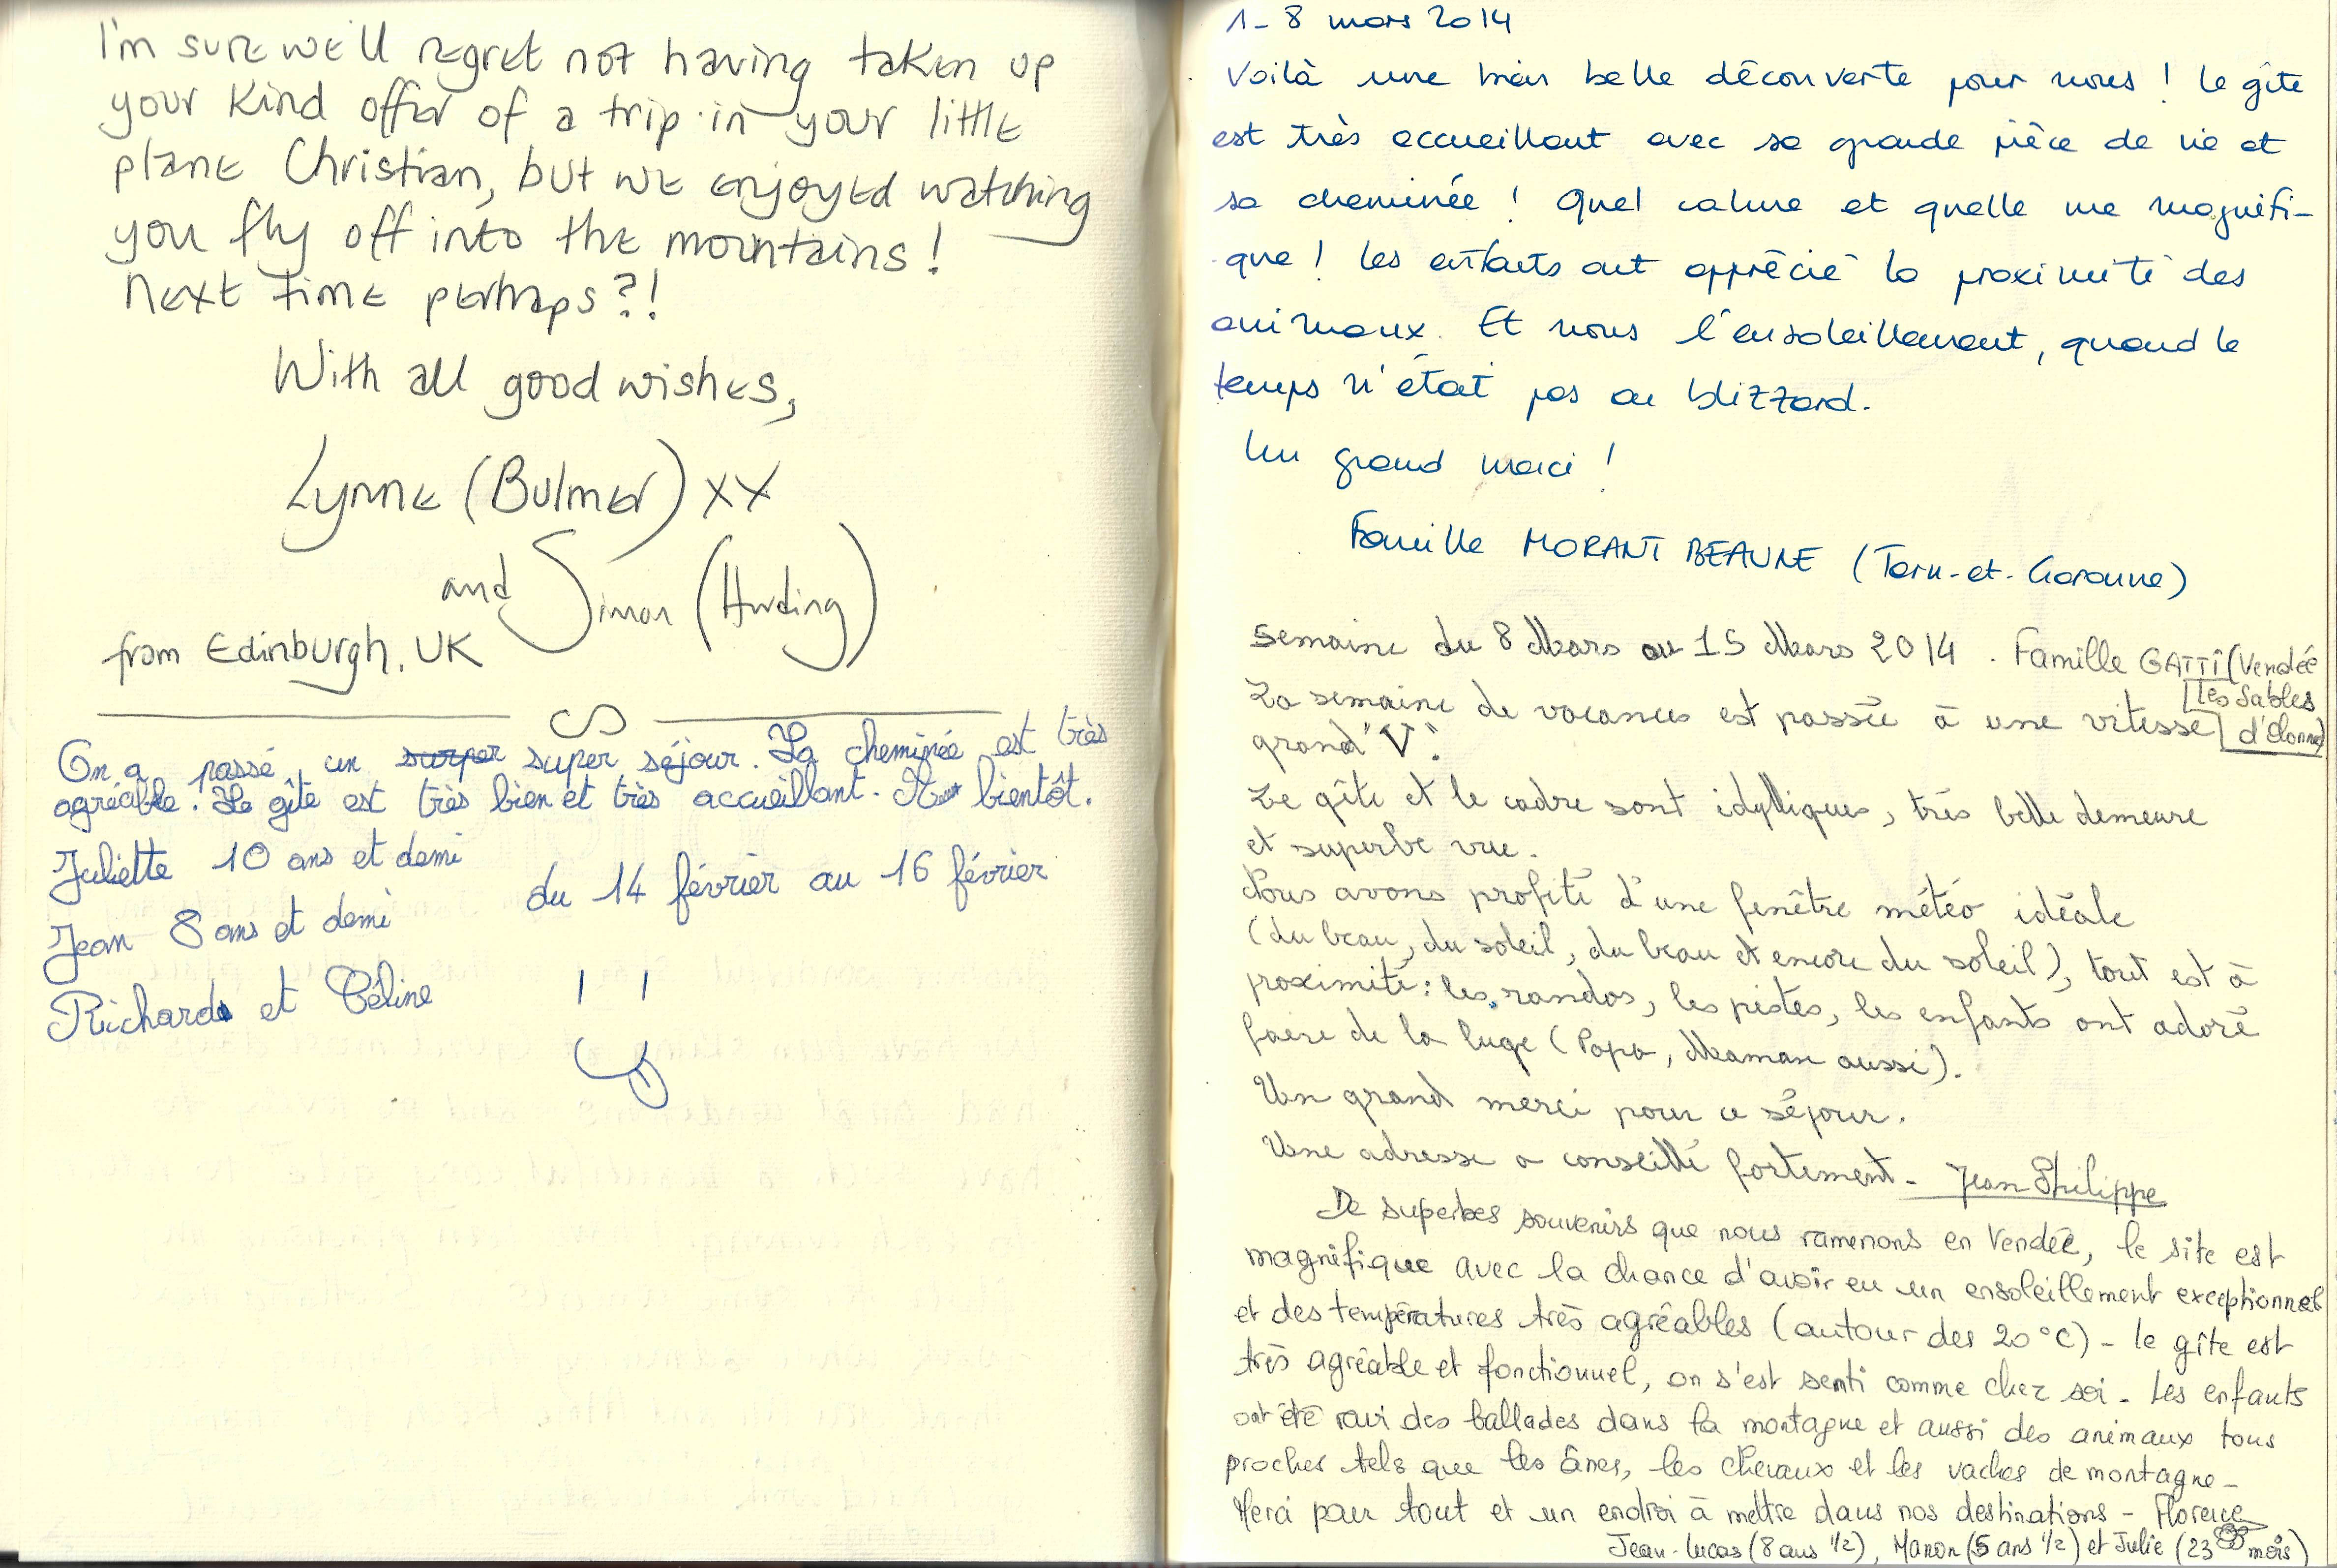 I'm sure we'll regret not having taken up
your kind offer of a trip in your little
plane Christian, but we enjoyed watching
you fly off into the mountains!
Next time perhaps?!
With all good wishes,
Lynne (Bulmer) xx
and Simon (Harding)
from Edinburgh, UK
On a passé un surper super séjour. La cheminée est très
agréable. Le gîte est très bien et très accueillant. A bientôt.
Juliette 10 ans et demi
du 14 février au 16 février
Jean 8 ans et demi
Richard et Céline
1-8 mars 2014
Voilà une bien belle découverte pour nous ! Le gîte
est très accueillant avec sa grande pièce de vie et
sa cheminée ! Quel calme et quelle vue magnifi-
que ! Les enfants ont apprécié la proximité des
animaux. Et nous l'ensoleillement, quand le
temps n'était pas au blizzard.
Un grand merci !
Famille MORANT BEAUNE (Tarn-et-Garonne)
Semaine du 8 Mars au 15 Mars 2014. Famille GATTI (Vendée
Les Sables
d'Olonne)
La semaine de vacances est passée à une vitesse
grand "V".
Le gîte et le cadre sont idylliques, très belle demeure
et superbe vue.
Nous avons profité d'une fenêtre météo idéale
(du beau, du soleil, du beau et encore du soleil), tout est à
proximité : les randos, les pistes, les enfants ont adoré
faire de la luge (Papa, Maman aussi).
Un grand merci pour ce séjour.
Une adresse a conseillé fortement - Jean Philippe
De superbes souvenirs que nous ramenons en Vendée, le site est
magnifique avec la chance d'avoir eu un ensoleillement exceptionnel
et des températures très agréables (autour des 20°C) - le gîte est
très agréable et fonctionnel, on s'est senti comme chez soi - Les enfants
ont été ravi des ballades dans la montagne et aussi des animaux tous
proches tels que les ânes, les chevaux et les vaches de montagne -
Merci pour tout et un endroi à mettre dans nos destinations - Florence
Jean-Lucas (8 ans 1/2), Manon (5 ans 1/2) et Julie (23 mois)